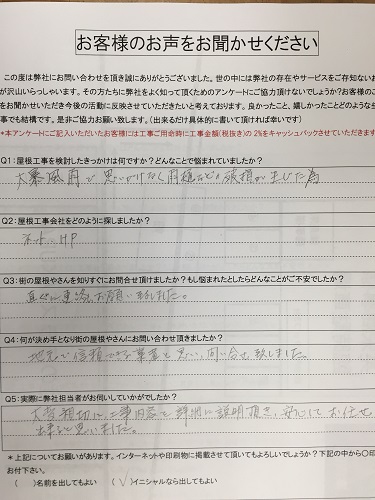 お客様のお声をお聞かせください
この度は弊社にお問い合わせを頂き誠にありがとうございました。世の中には弊社の存在やサービスをご存知ないお
が沢山いらっしゃいます。その方たちに弊社をよく知って頂くためのアンケートにご協力頂けないでしょうか?お客様のご
をお聞かせいただき今後の活動に反映させていただきたいと考えております。良かったこと、嬉しかったことどのような
事でも結構です。是非ご協力お願い致します。(出来るだけ具体的に書いて頂ければ幸いです)
*本アンケートにご記入いただいたお客様には工事ご用命時に工事金額(税抜き)の 2%をキャッシュバックさせていただきます
Q1:屋根工事を検討したきっかけは何ですか?どんなことで悩まれていましたか?
大暴風雨で思いがけなく雨樋などの破損が生じた為
Q2:屋根工事会社をどのように探しましたか?
ネット、HP
Q3:街の屋根やさんを知りすぐにお問合せ頂けましたか?もし悩まれたとしたらどんなことがご不安でしたか?
直ぐに連絡、お願い致しました。
Q4:何が決め手となり街の屋根やさんにお問い合わせ頂きましたか?
地元で信頼できる業者と思い、問い合せ致しました。
Q5:実際に弊社担当者がお伺いしていかがでしたか?
大変親切に工事内容を詳細に説明頂き、安心してお任せ
出来ると思いました。
*上記についてお願いがあります。インターネットや印刷物に掲載させて頂いてもよろしいでしょうか?下記の中から〇印
お付下さい。
( )名前を出してもよい (√)イニシャルなら出してもよい